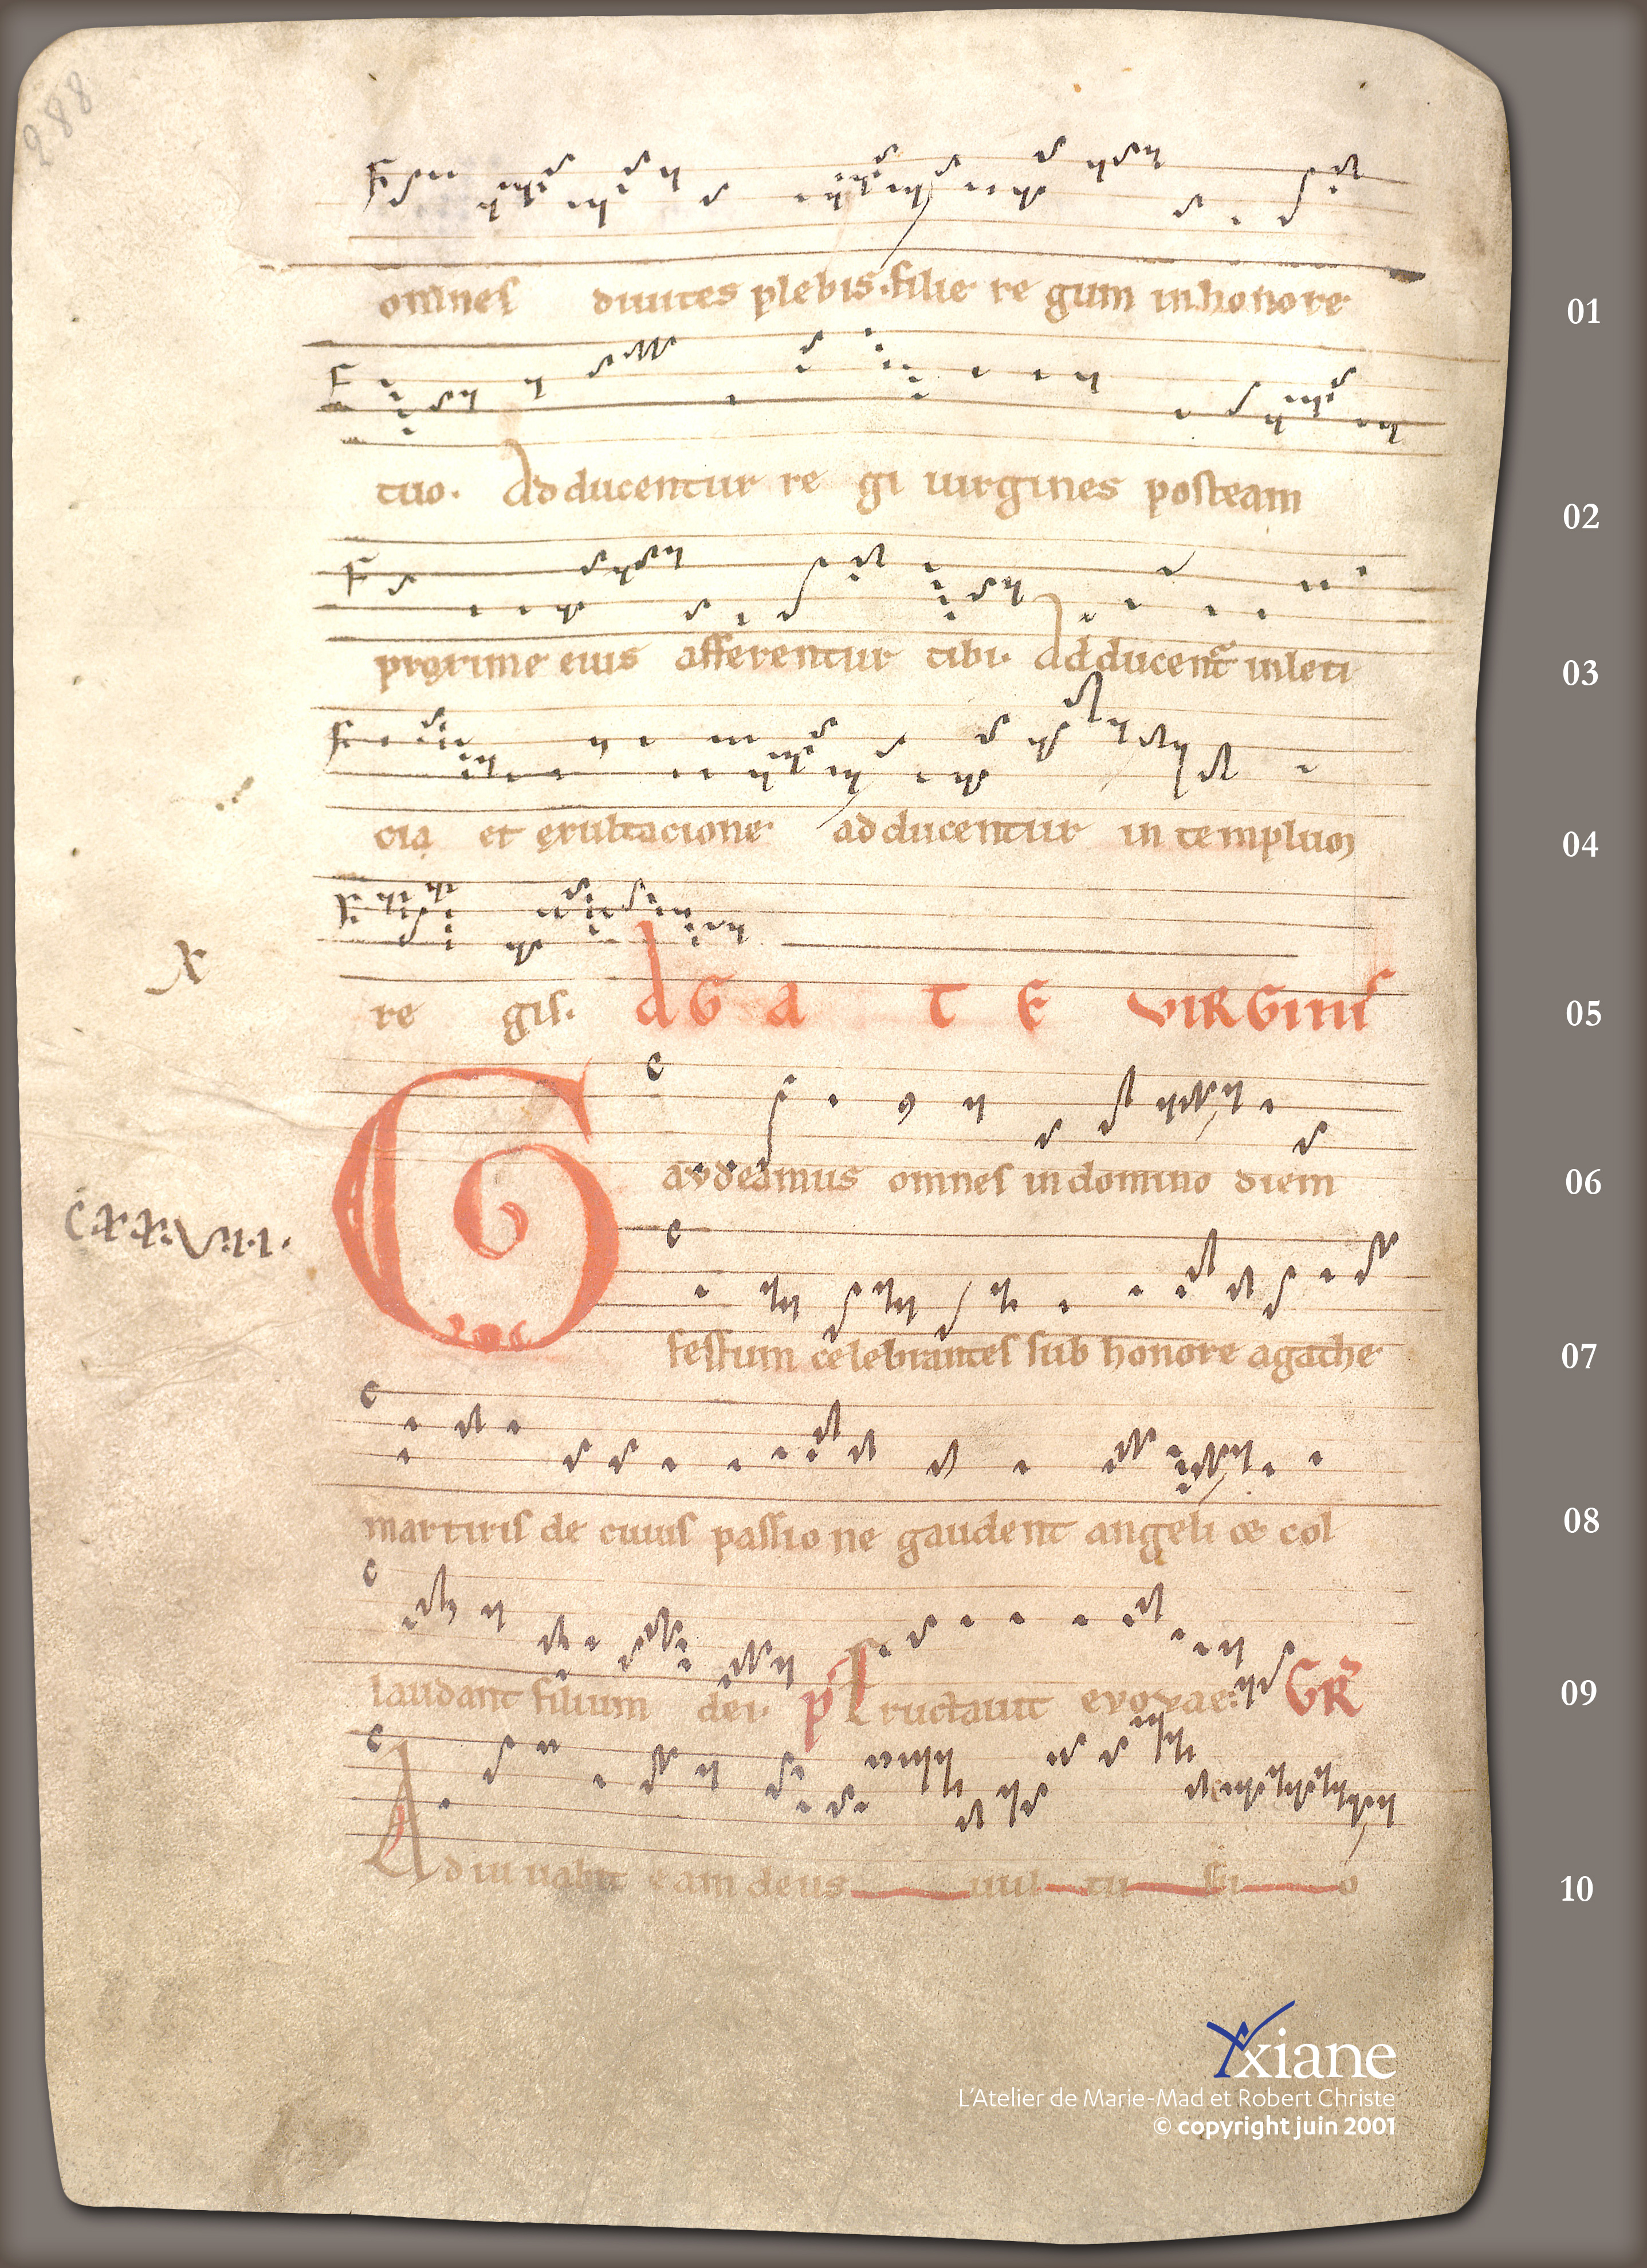 288
omnes diuites plebis. filie re gum in honore 01
tuo. Adducentur re gi uirgines posteam 02
proxime eius afferentur tibi. Adducent in leti 03
cia et exultacione adducentur in templum 04
X
re gis. AGATE VIRGINIS 05
Gaudeamus omnes in domino diem 06
CXXXVIII.
festum celebrantes sub honore agathe 07
martiris de cuius passio ne gaudent angeli et col 08
laudant filium dei. p Eructauit evovae: GR 09
Adiuuabit eam deus uul tu su o 10
Yxiane
L'Atelier de Marie-Mad et Robert Christe
© copyright juin 2001